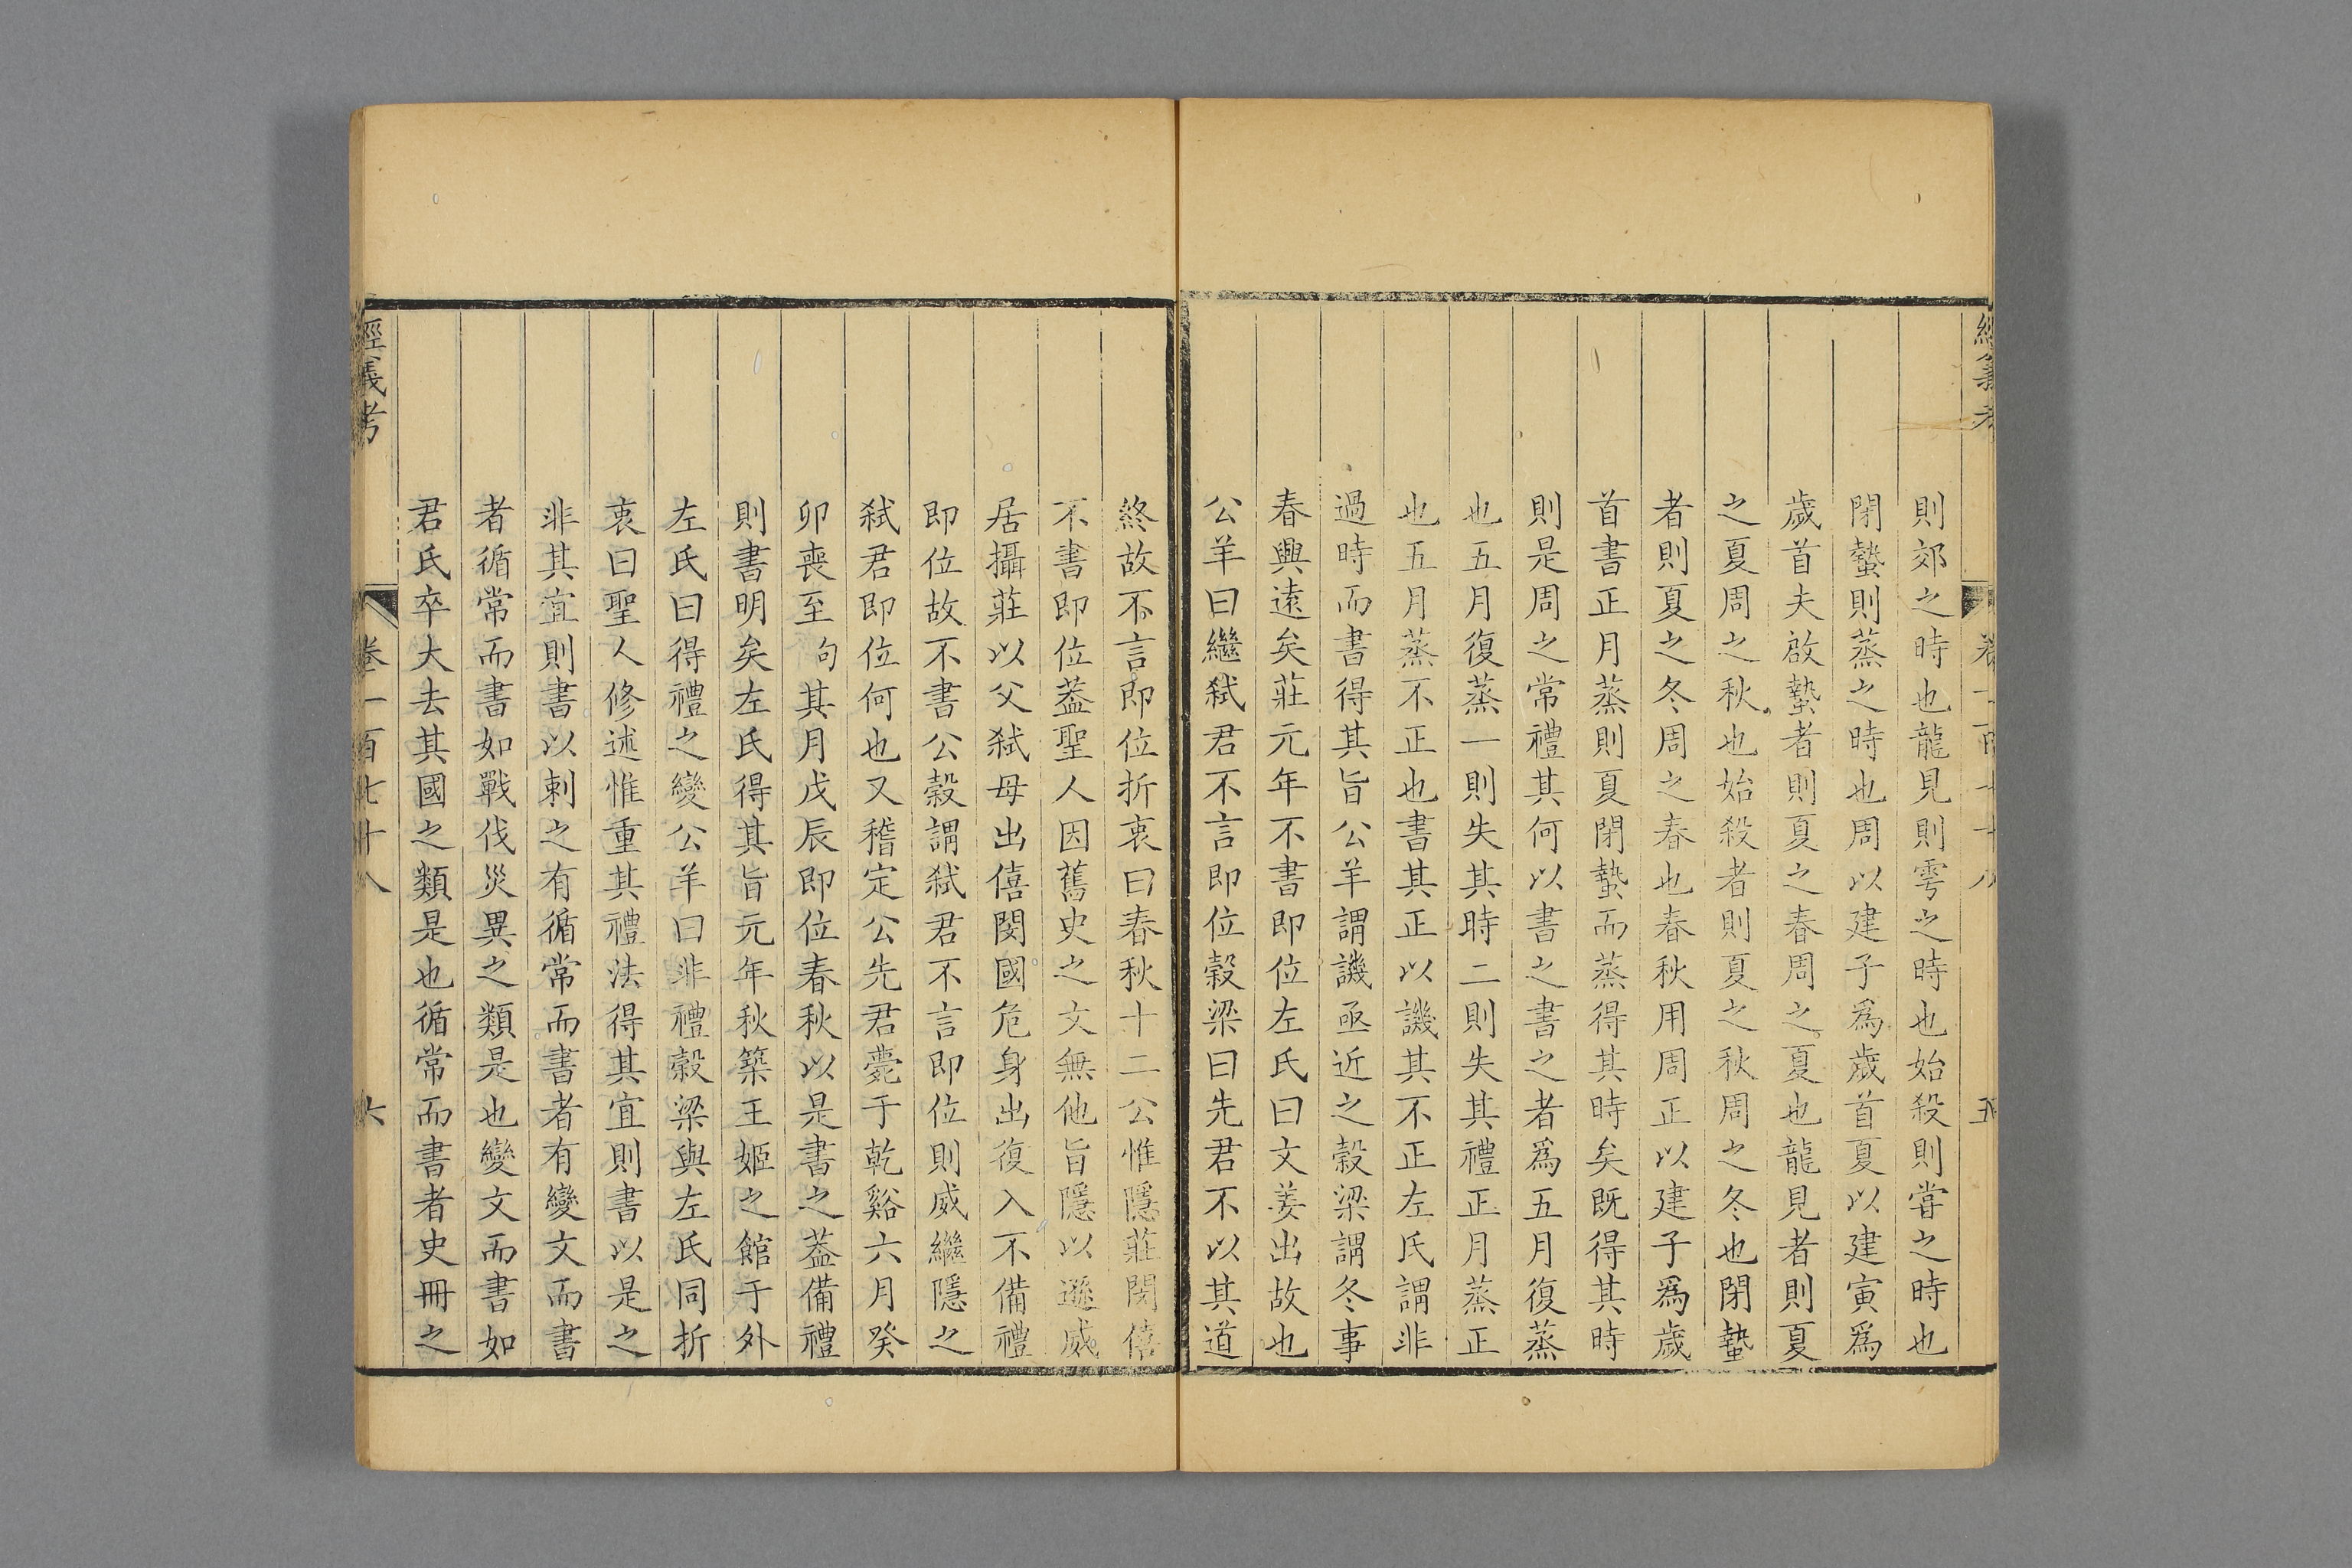 則郊之時也龍見則雩之時也始殺則甞之時也
閉蟄則蒸之時也周以建子爲歲首夏以建寅爲
歲首夫啟蟄者則夏之春周之夏也龍見者則夏
之夏周之秋也始殺者則夏之秋周之冬也閉蟄
者則夏之冬周之春也春秋用周正以建子爲歲
首書正月蒸則夏閉蟄而蒸得其時矣既得其時
則是周之常禮其何以書之書之者爲五月復蒸
也五月復蒸一則失其時二則失其禮正月蒸正
也五月蒸不正也書其正以譏其不正左氏謂非
過時而書得其旨公羊謂譏亟近之穀梁謂冬事
春興遠矣莊元年不書即位左氏曰文姜出故也
公羊曰繼弒君不言即位穀梁曰先君不以其道
終故不言即位折衷曰春秋十二公惟隱莊閔僖
不書即位葢聖人因舊史之文無他旨隱以遜威
居攝莊以父弒母出僖閔國危身出復入不備禮
即位故不書公穀謂弒君不言即位則威繼隱之
弒君即位何也又稽定公先君薨于乾谿六月癸
卯喪至句其月戊辰即位春秋以是書之葢備禮
則書明矣左氏得其旨元年秋築王姬之館于外
左氏曰得禮之變公羊曰非禮穀梁與左氏同折
衷曰聖人修述惟重其禮法得其宜則書以是之
非其宜則書以刺之有循常而書者有變文而書
者循常而書如戰伐災異之類是也變文而書如
君氏卒大去其國之類是也循常而書者史冊之
經義考 卷一百七十八 六